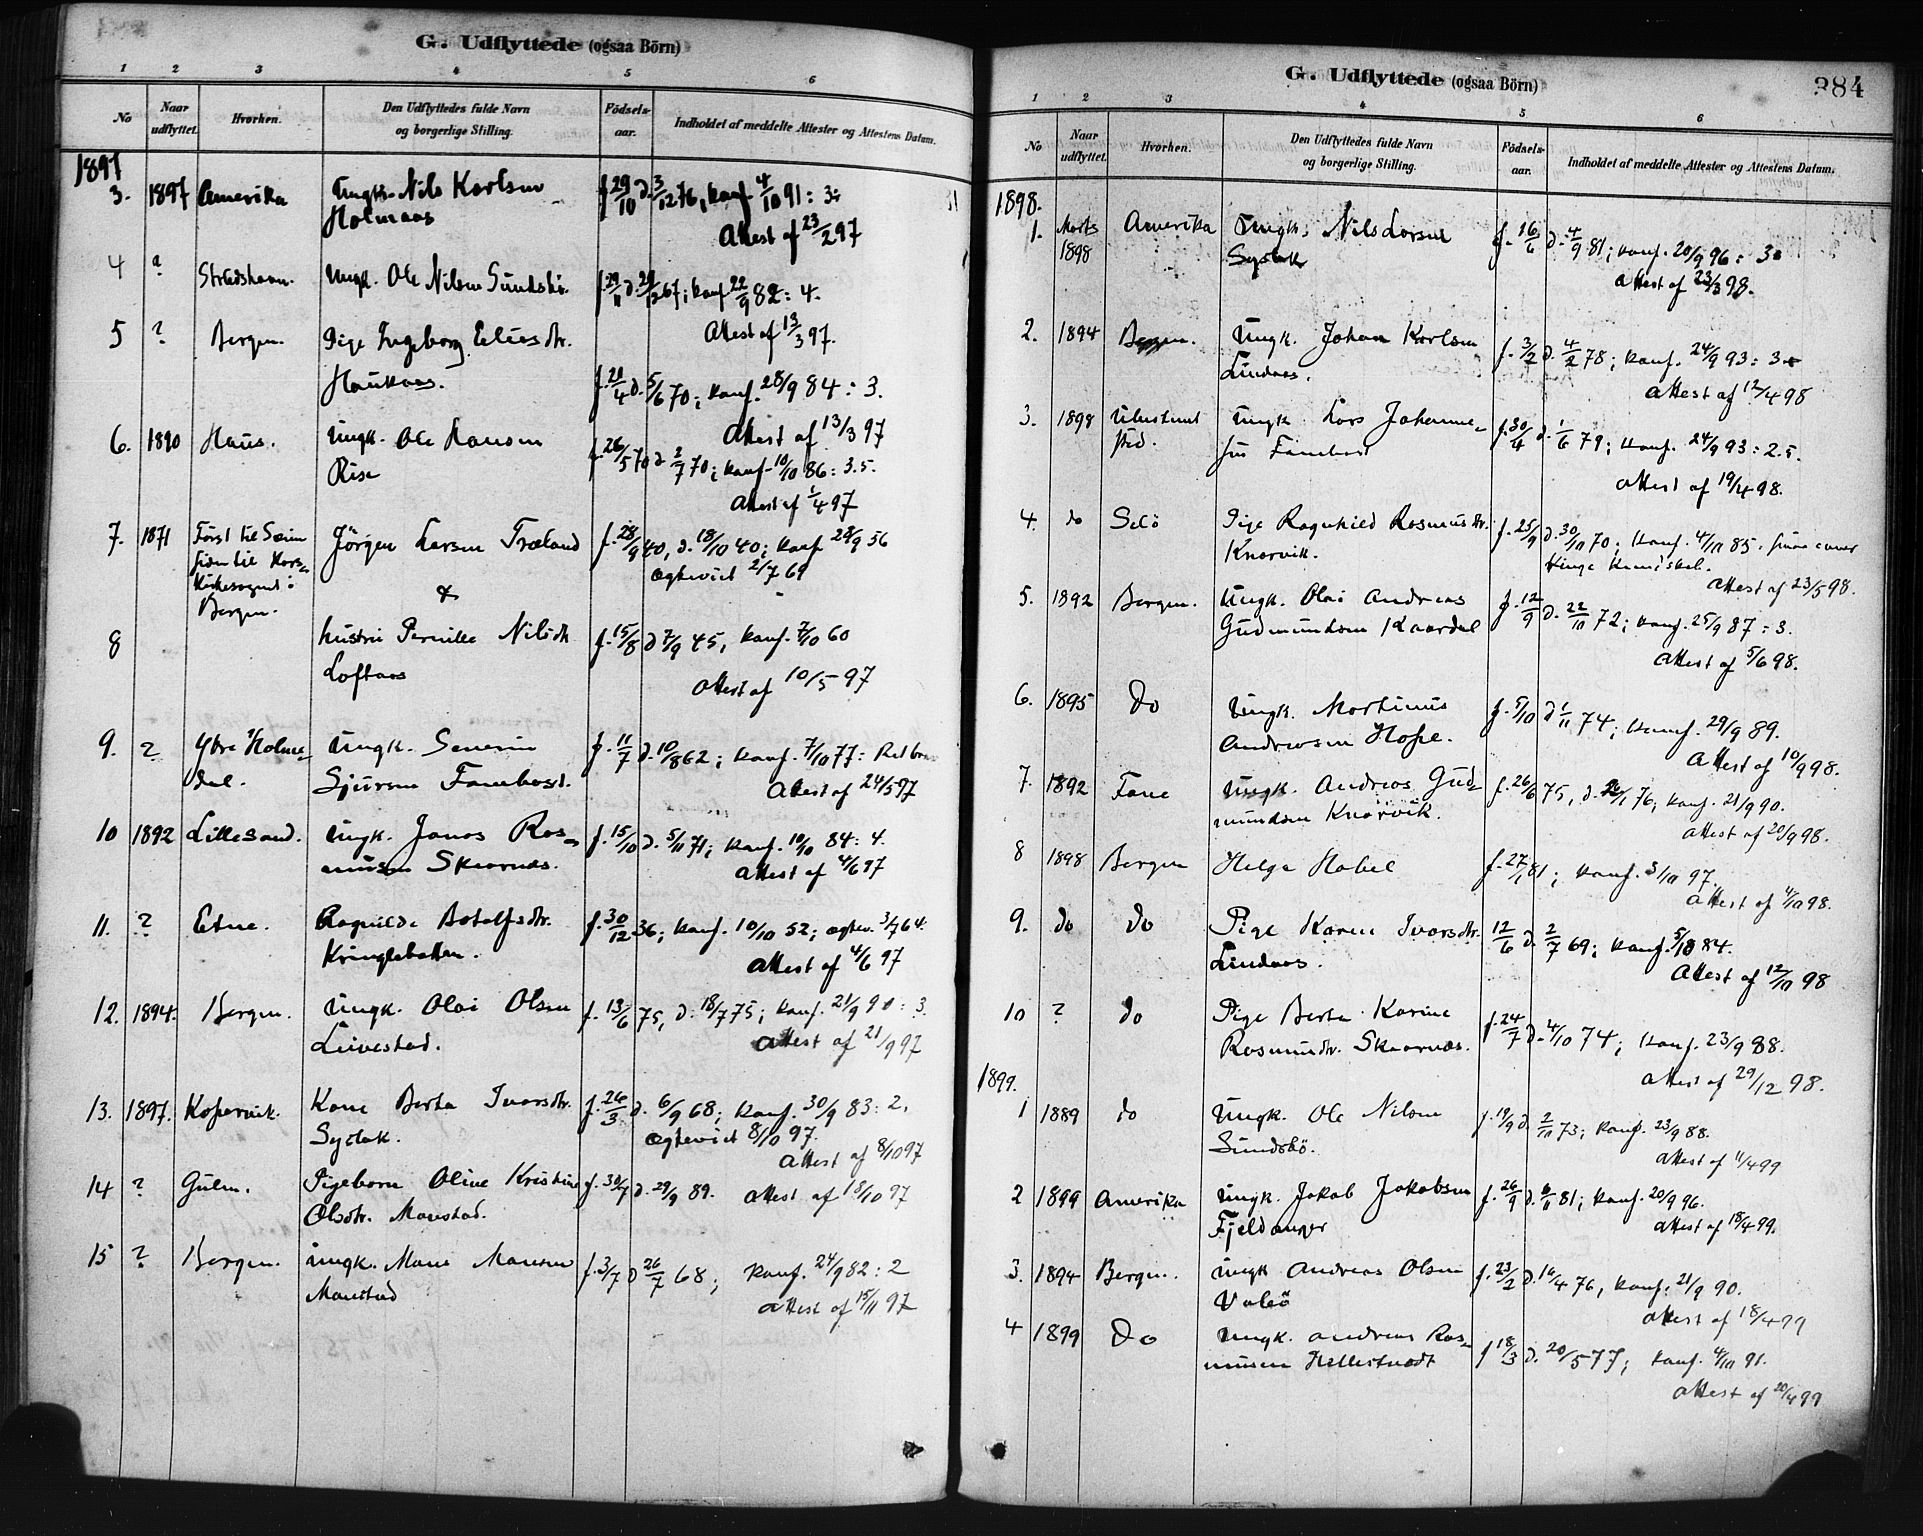 G. Udflyttede (ogsaa Börn)
1 2 3 4 5 6
No Naar udflyttet. Hvorhen. Den Udflyttedes fulde Navn og borgerlige Stilling. Födsels-aar. Indholdet af meddelte Attester og Attestens Datum.
1897
3. 1897 Amerika Ungk. Nils Karlsen f. 29/10 d. 3/12 76, konf. 4/10 91: 3
Holmaas
Attest af 23/2 97
4 ? Ungk. Ole Nilsen Sundsbö. konf. 82: 4.
5 ? Bergen. Pige Ingeborg Eliasdtr. Attest af 13/3 97.
Haukaas. f. 21/4 d. 5/6 70; konf. 28/9 84: 3.
Attest af 13/3 97
6. 1890 Haus. Ungk. Ole Hansen f. 26/5 70 d. 2/7 70; konf. 10/10 86: 3.5.
Risa
Attest af 1/4 97
7. 1871 Först til Seim Jörgen Larsen Træland f. 28/9 40, d. 18/10 40; konf. 28/9 56
siden til Kors-
Kirkesognet i Ægteviet 2/7 69
Bergen. &
8 hustru Pernille Nilsdtr f. 15/8 d 7/9 45, konf. 7/10 60
Loftaas
Attest af 10/5 97
9. ? Ytre Holme- Ungk. Severin f. 11/7 d. 10/8 62; konf. 7/10 77:
dal. Sjursen Fonebost. Attest af 24/5 97
10 1892 Lillesand. Ungk. Jonas Ras- f. 15/10 d. 5/11 71; konf. 10/10 84: 4.
musen Skaarnes. Attest af 4/6 97
11. ? Etne. Ragnilda Botolfsdtr. f. 30/12 36; konf. 10/10 52; ægtev. 3/7 64.
Kringlebotten. Attest af 4/6 97
12. 1894. Bergen. Ungk. Olai Olsen f. 13/6 75, d. 18/7 75; konf. 21/9 90: 3.
Leivestad. Attest af 21/9 97
13. 1897. Kopervik. Kone Berta Ivarsdtr. f. 26/3 d. 6/9 68; konf. 30/9 83: 2,
Syslak. Ægteviet 8/10 97.
Attest af 8/10 97
14 ? Gulen. Pigebarn Oline Kristine f. 30/7 d. 29/9 89. Attest af 18/10 97
Olsdtr. Monstad.
15 ? Bergen. Ungk. Mons Monsen f. 3/7 d 26/7 68; konf. 24/9 82: 2
Monstad
Attest af 15/11 97
G. Udflyttede (ogsaa Börn)
384
1 2 3 4 5 6
No Naar udflyttet. Hvorhen. Den Udflyttedes fulde Navn og borgerlige Stilling. Födsels-aar. Indholdet af meddelte Attester og Attestens Datum.
1898.
1. Marts Amerika Ungk. Nils Larsen f. 16/6 d. 4/9 81; konf. 20/9 96: 3
1898 Syslak
Attest af 23/3 98.
2. 1894 Bergen. Ungk. Johan Karlsen f. 3/2 d. 4/2 78; konf. 24/9 93: 3
Lindaas.
Attest af 12/4 98
3. 1898 Ubestemt Ungk. Lars Johanne- f. 30/4 d. 1/6 79; konf. 24/9 93: 2.5.
sted. sen Fonebost
Attest af 19/4 98.
4. do Selö Pige Ragnhild Rasmusdtr. f. 25/9 d. 30/10 70; konf. 4/10 85.
Knarvik.
Attest af 23/5 98.
5. 1892 Bergen. Ungk. Olai Andreas f. 12/9 d. 22/10 72; konf. 25/9 87: 3.
Gudmundsen Kaardal
Attest af 5/6 98.
6. 1895 Do Ungk. Martinus f. 5/10 d 1/11 74; konf. 29/9 89.
Andreasen Hope.
Attest af 10/9 98.
7. 1892 Fane Ungk. Andreas Gud- f. 26/6 75, d. 76; konf. 21/9 90.
mundsen Knarvik.
Attest af 20/9 98.
8 1898 Bergen Helga Habel f. 27/1 81; konf. 3/10 97.
Attest af 4/10 98.
9. do Do Pige Karen Ivarsdtr. 12/6 d. 2/7 69; konf. 5/10 84.
Lindaas.
Attest af 12/10 98
10 ? Do Pige Berta Karine f. 24/7 d. 4/10 74; konf. 23/9 88.
Rasmusdtr. Skaarnes.
Attest af 29/12 98.
1899.
1 1889 do Ungk. Ole Nilsen f. 19/9 d. 2/11 73; konf. 23/9 88.
Sundsbö.
Attest af 11/4 99
2 1899 Amerika Ungk. Jakob Jakobsen f. 26/9 d. 6/11 81; konf. 20/9 96.
Fjeldanger
Attest af 18/4 99.
3. 1894 Bergen. Ungk Andreas Olsen f. 23/2 d. 16/4 76, konf. 21/9 90.
Valö
Attest af 18/4 99
4 1899 Do Ungk. Andreas Ras- f 18/3 d. 20/5 77; konf. 4/10 91.
musen Hellestvedt
Attest af 20/4 99